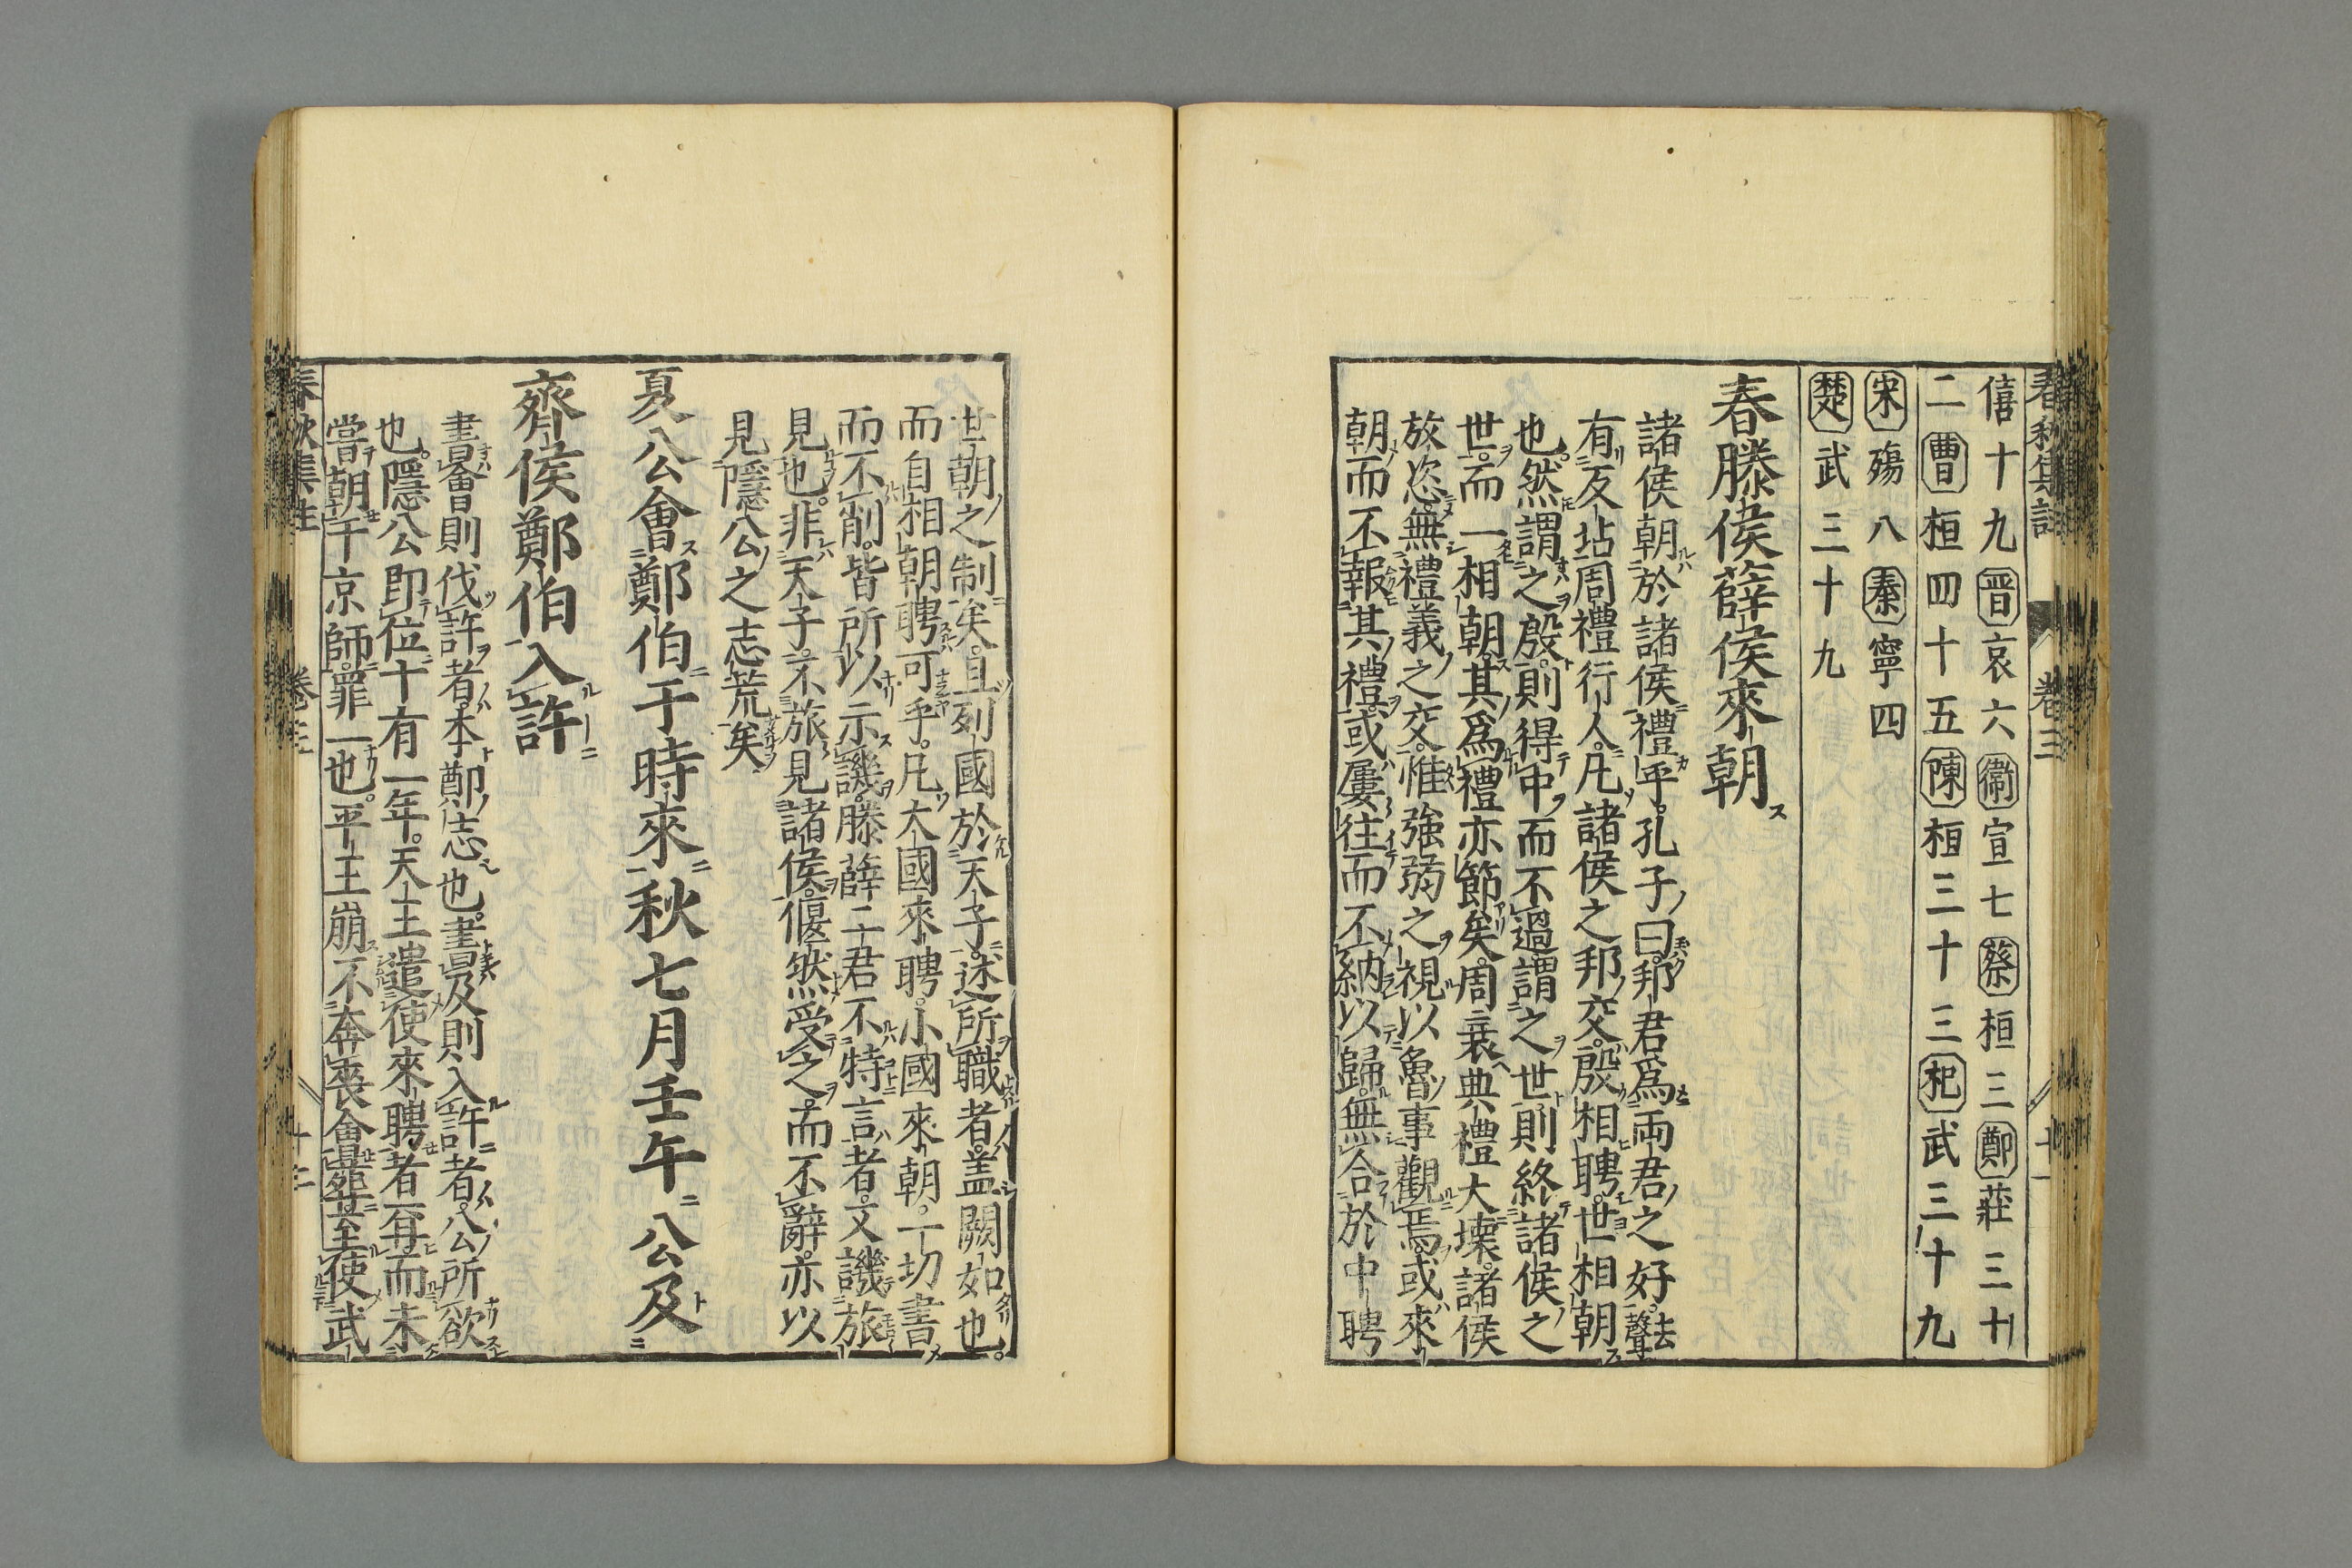 春秋集註 卷三 十一
僖十九晋哀六衞宣七蔡桓三鄭莊三十
二曹桓四十五陳桓三十三杞武三十九
宋殤八秦寧四
楚武三十九
春滕侯薛侯來朝
諸侯朝於諸侯禮乎孔子曰邦君爲兩君之好去聲
有反坫周禮行人凡諸侯之邦交殷相聘世相朝
也然謂之殷則得中而不過謂之世則終諸侯之
世而一相朝其爲禮亦節矣周衰典禮大壞諸侯
放恣無禮義之交惟強弱之視以魯事觀焉或來
朝而不報其禮或屢往而不納以歸無合於中聘
世朝之制矣且列國於天子述所職者盖闕如也
而自相朝聘可乎凡大國來聘小國來朝一切書
而不削皆所以示譏滕薛二君不特言者又譏旅
見也非天子不旅見諸侯偃然受之而不辭亦以
見隱公之志荒矣
夏公會鄭伯于時來秋七月壬午公及
齊侯鄭伯入許
書會則伐許者本鄭志也書及則入許者公所欲
也隱公即位十有一年天王遣使來聘者再而未
嘗朝于京師罪一也平王崩不奔喪會葬至使武
春秋集註 卷三 十二